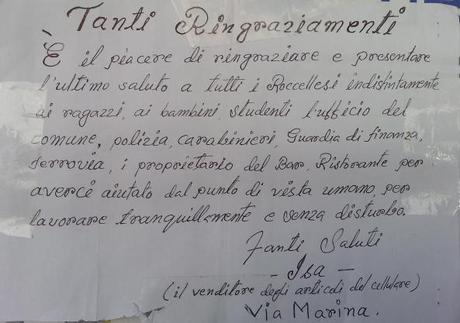 Tanti Ringraziamenti
È il piacere di ringraziare e presentare
l'ultimo saluto a tutti i Roccellesi indistintamente
ai ragazzi, ai bambini, studenti l'ufficio del
comune, polizia, carabinieri, Guardia di finanza,
ferrovia, i proprietario del Bar, Ristorante per
averci aiutato dal punto di vista umano, per
lavorare tranquillamente e senza disturbo.
Tanti Saluti
- Isa -
(il venditore degli articoli del cellulare)
Via Marina.